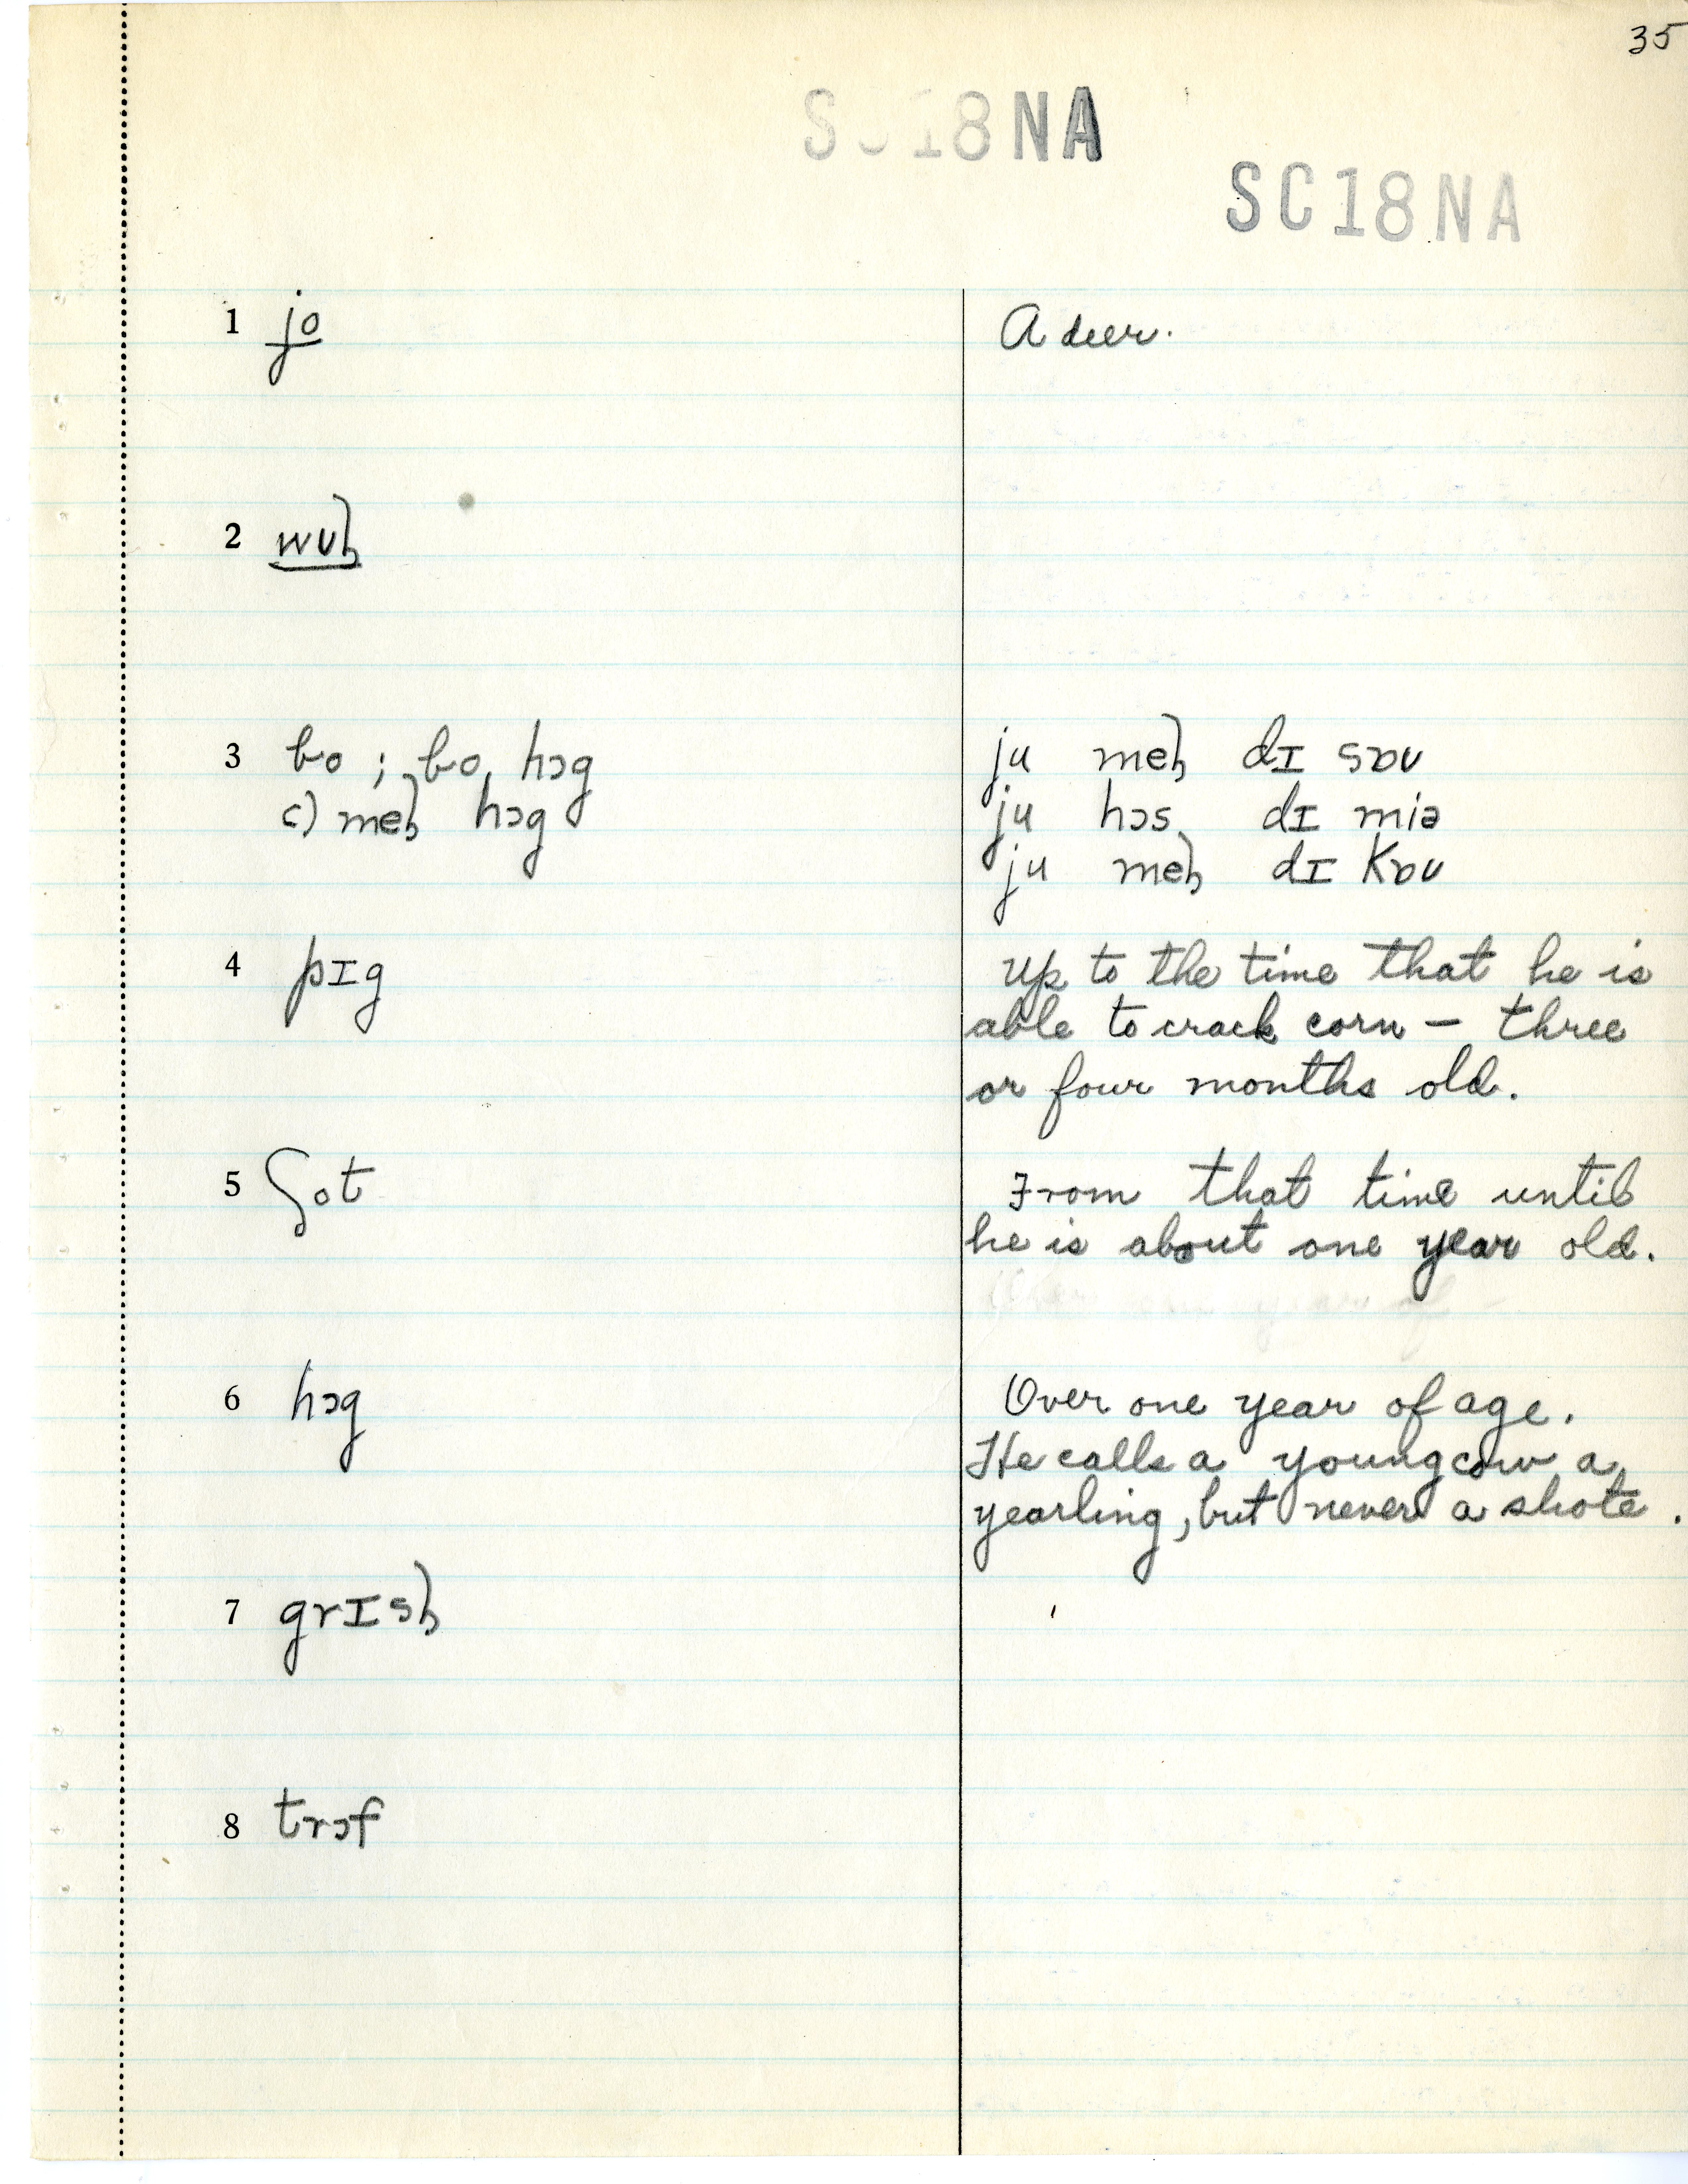 35
SC18NA
SC18NA
1 jo
A deer.
2 wuɭ
3 bo ; bo hɔg
ju meɭ dɪ sɒu
c) meɭ hɔg
ju hɔs dɪ miə
ju meɭ dɪ kɒu
4 pɪg
Up to the time that he is
able to crack corn — three
or four months old.
5 ʃot
From that time until
he is about one year old.
6 hɔg
Over one year of age.
He calls a young cow a
yearling, but never a shote.
7 grɪsɭ
8 trɔf